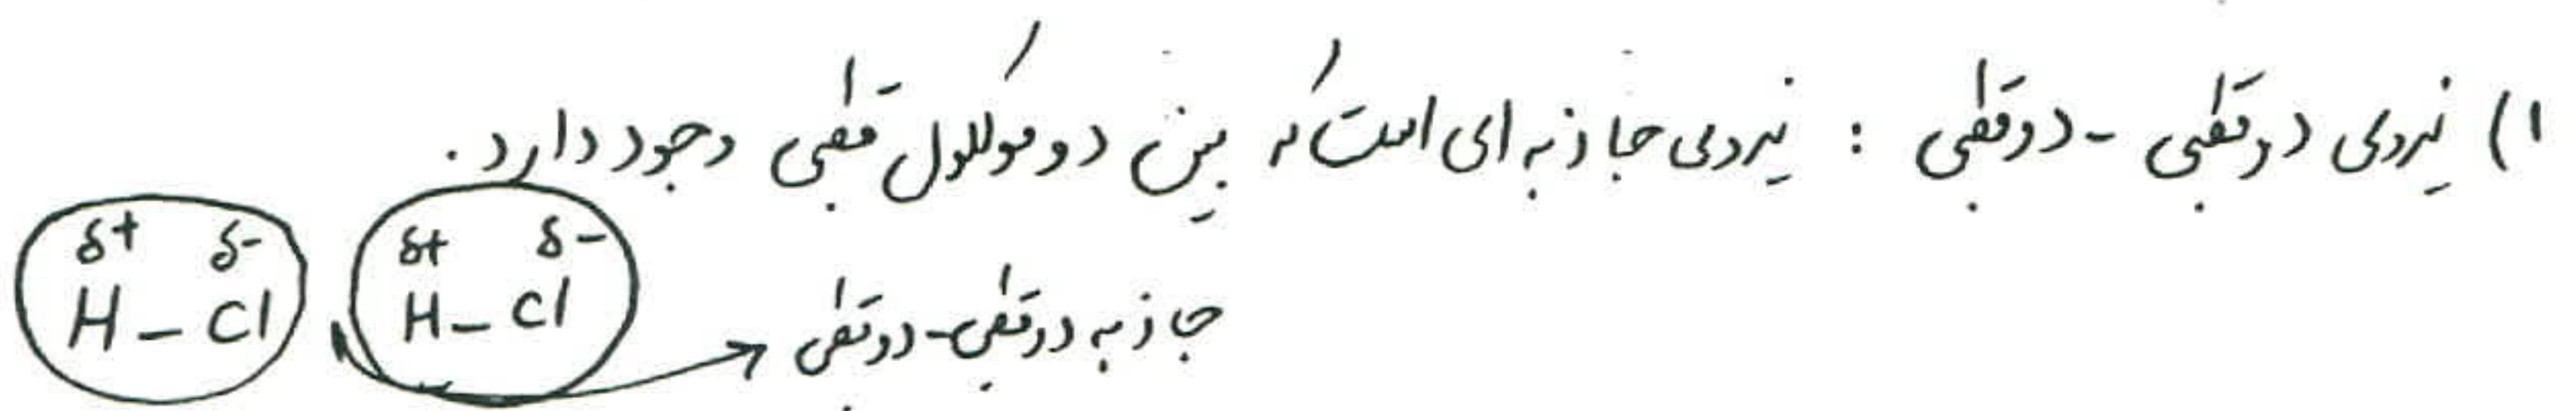 ۱) نیروی دوقطبی - دوقطبی : نیروی جاذبه ای است که بین دو مولکول قطبی وجود دارد.
δ+ δ- δ+ δ-
H - Cl H - Cl
جاذبه دوقطبی - دوقطبی